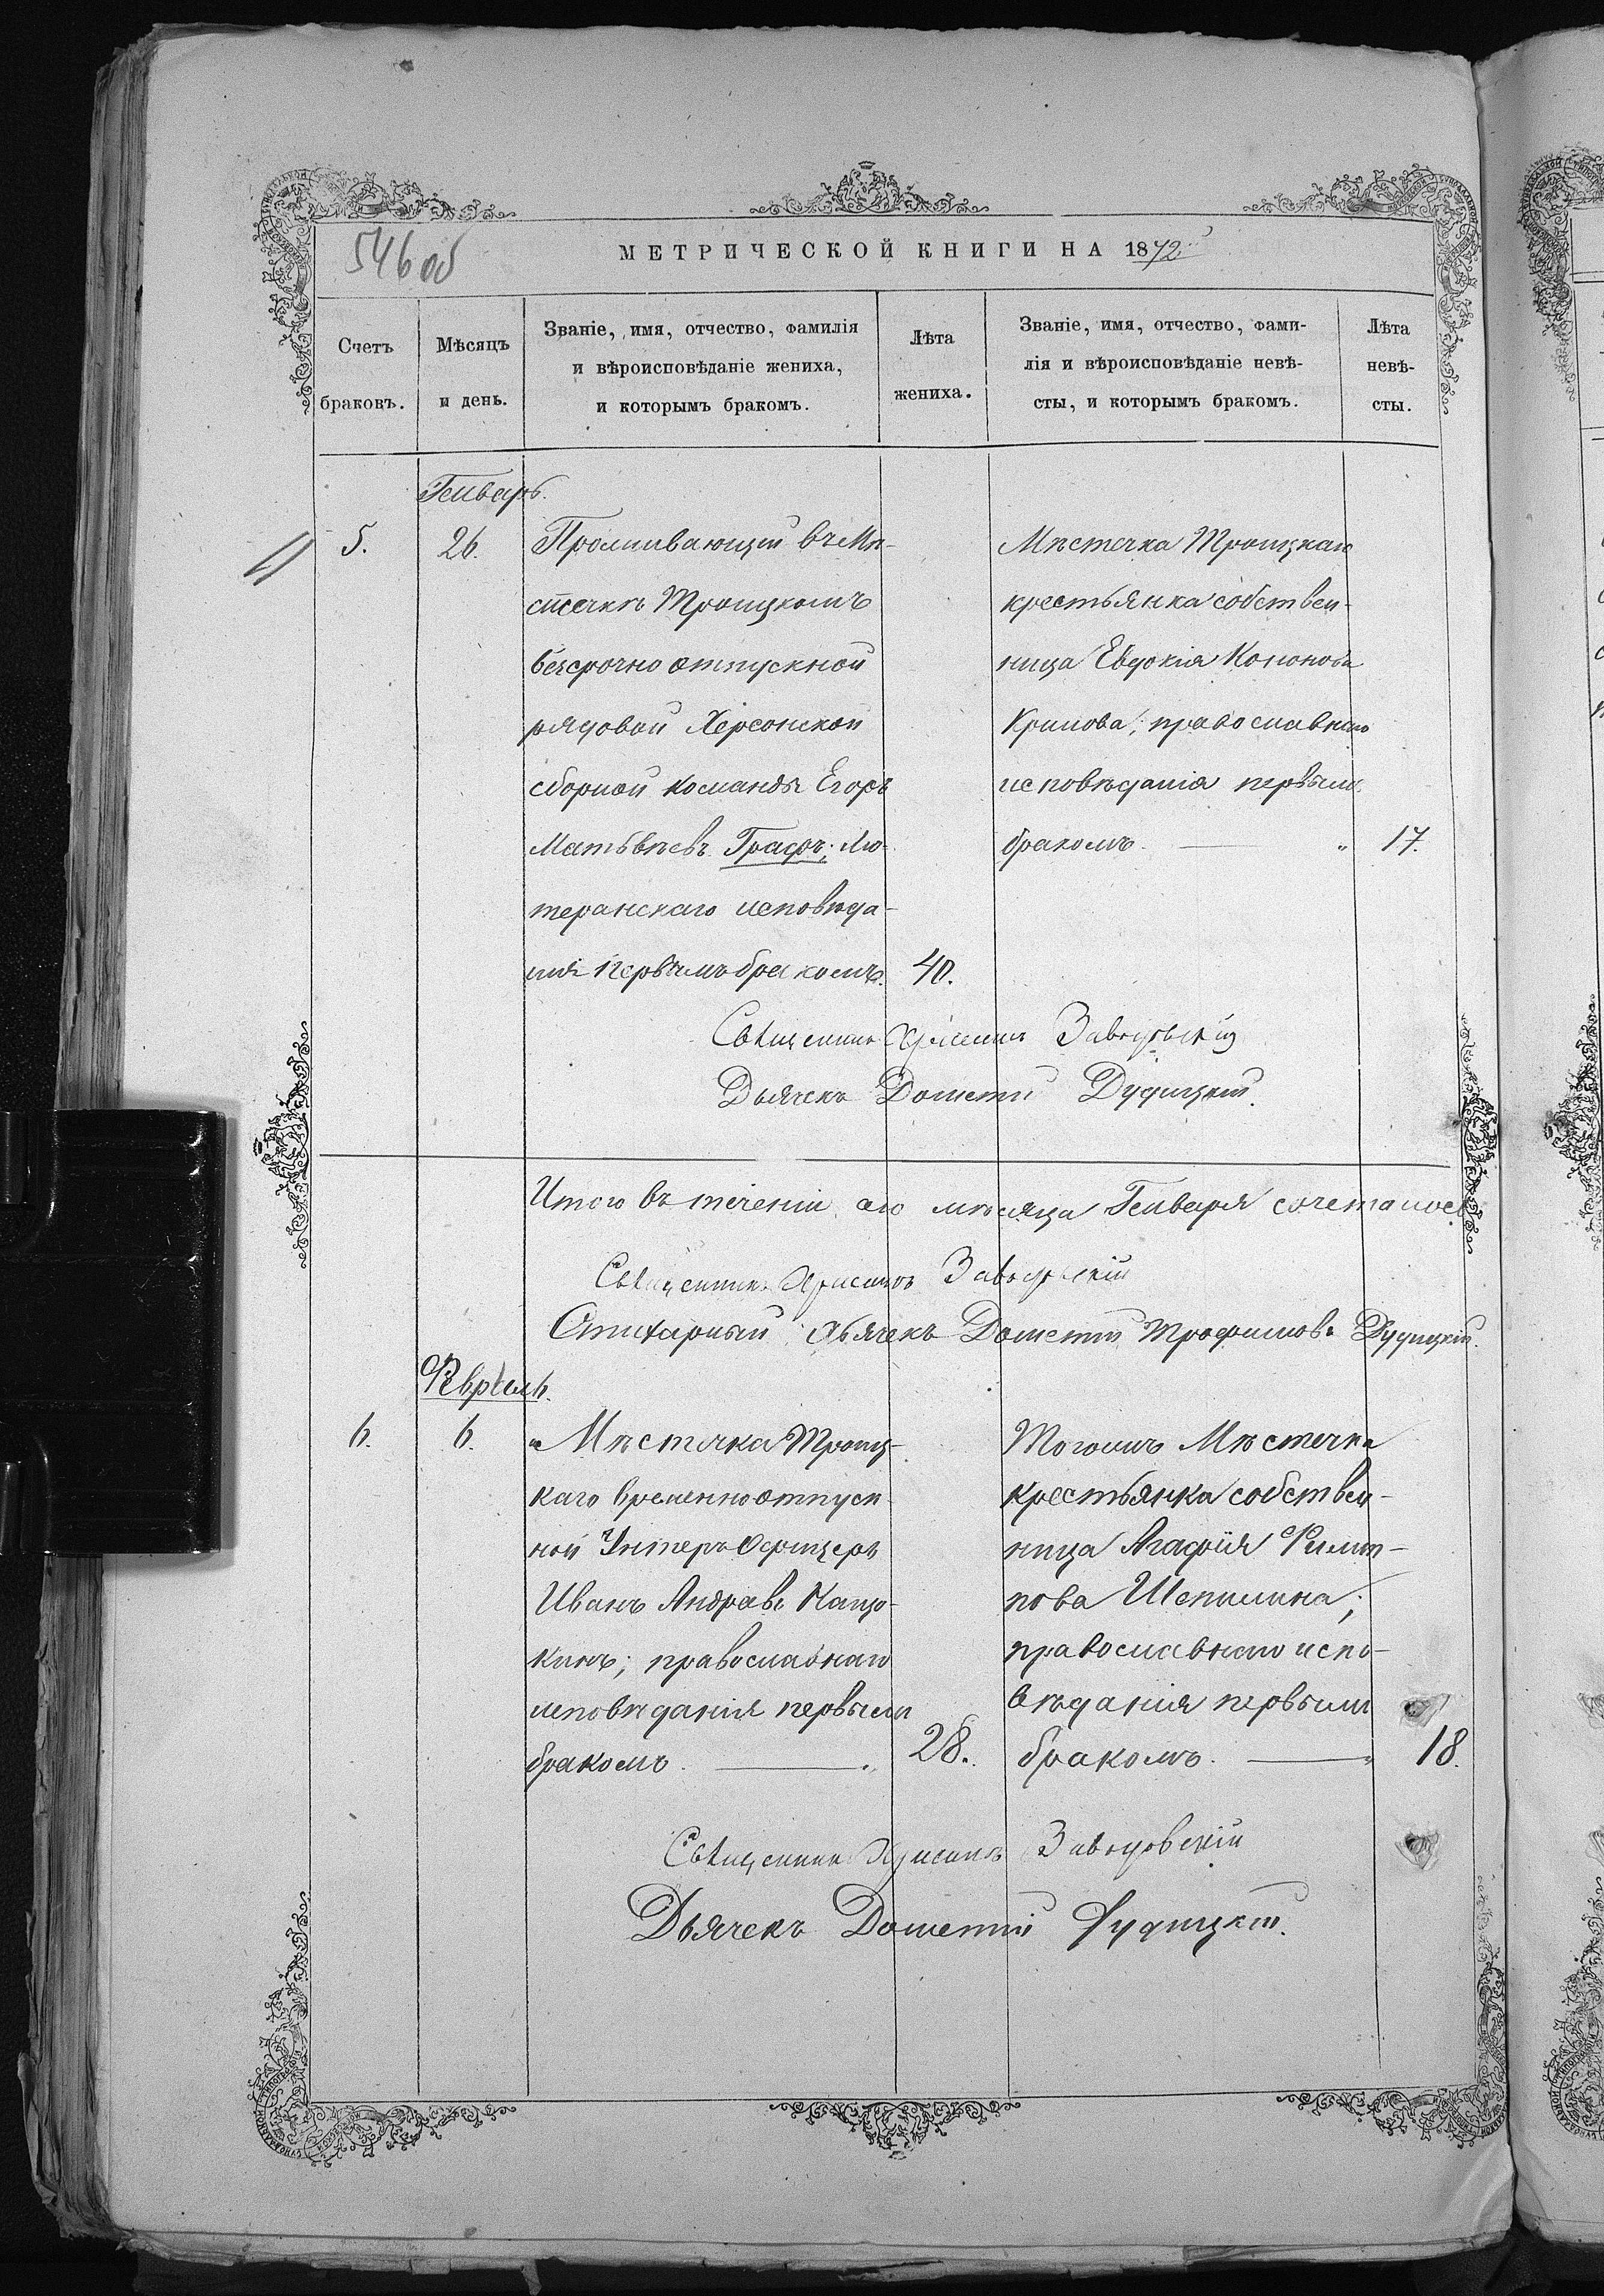 546 об
МЕТРИЧЕСКОЙ КНИГИ НА 1872
Счетъ браковъ.
Мѣсяцъ и день.
Званіе, имя, отчество, фамилія
и вѣроисповѣданіе жениха,
и которымъ бракомъ.
Лѣта
жениха.
Званіе, имя, отчество, фами-
лія и вѣроисповѣданіе невѣ-
сты, и которымъ бракомъ.
Лѣта
невѣ-
сты.
Генварь.
5.
26.
Проживающій въ Мѣ-
стечкѣ Троицкомъ
безсрочно отпускной
рядовой Херсонской
сборной команды Егоръ
Матвѣевъ Графъ; Лю-
теранскаго исповѣда-
нія первымъ бракомъ.
40.
Мѣстечка Троицкаго
крестьянка собствен-
ница Евдокія Кононова
православнаго
исповѣданія первымъ
бракомъ.
17.
Священникъ Завадовскій
Дьячекъ Дометій Дудицкій.
Итого въ теченіи сего мѣсяца Генваря сочеталось
Священникъ Завадовскій
Дьячекъ Дометій Трофимовъ Дудицкій.
Февраль.
6.
6.
Мѣстечка Троиц-
каго временно отпуск-
ной Унтеръ Офицеръ
Иванъ Андреевъ Кацю-
кинъ; православнаго
исповѣданія первымъ
бракомъ.
28.
Тогожъ Мѣстечка
крестьянка собствен-
ница Агафія Филип-
пова Шепилина;
православнаго испо-
вѣданія первымъ
бракомъ.
18.
Священникъ Завадовскій
Дьячекъ Дометій Дудицкій.